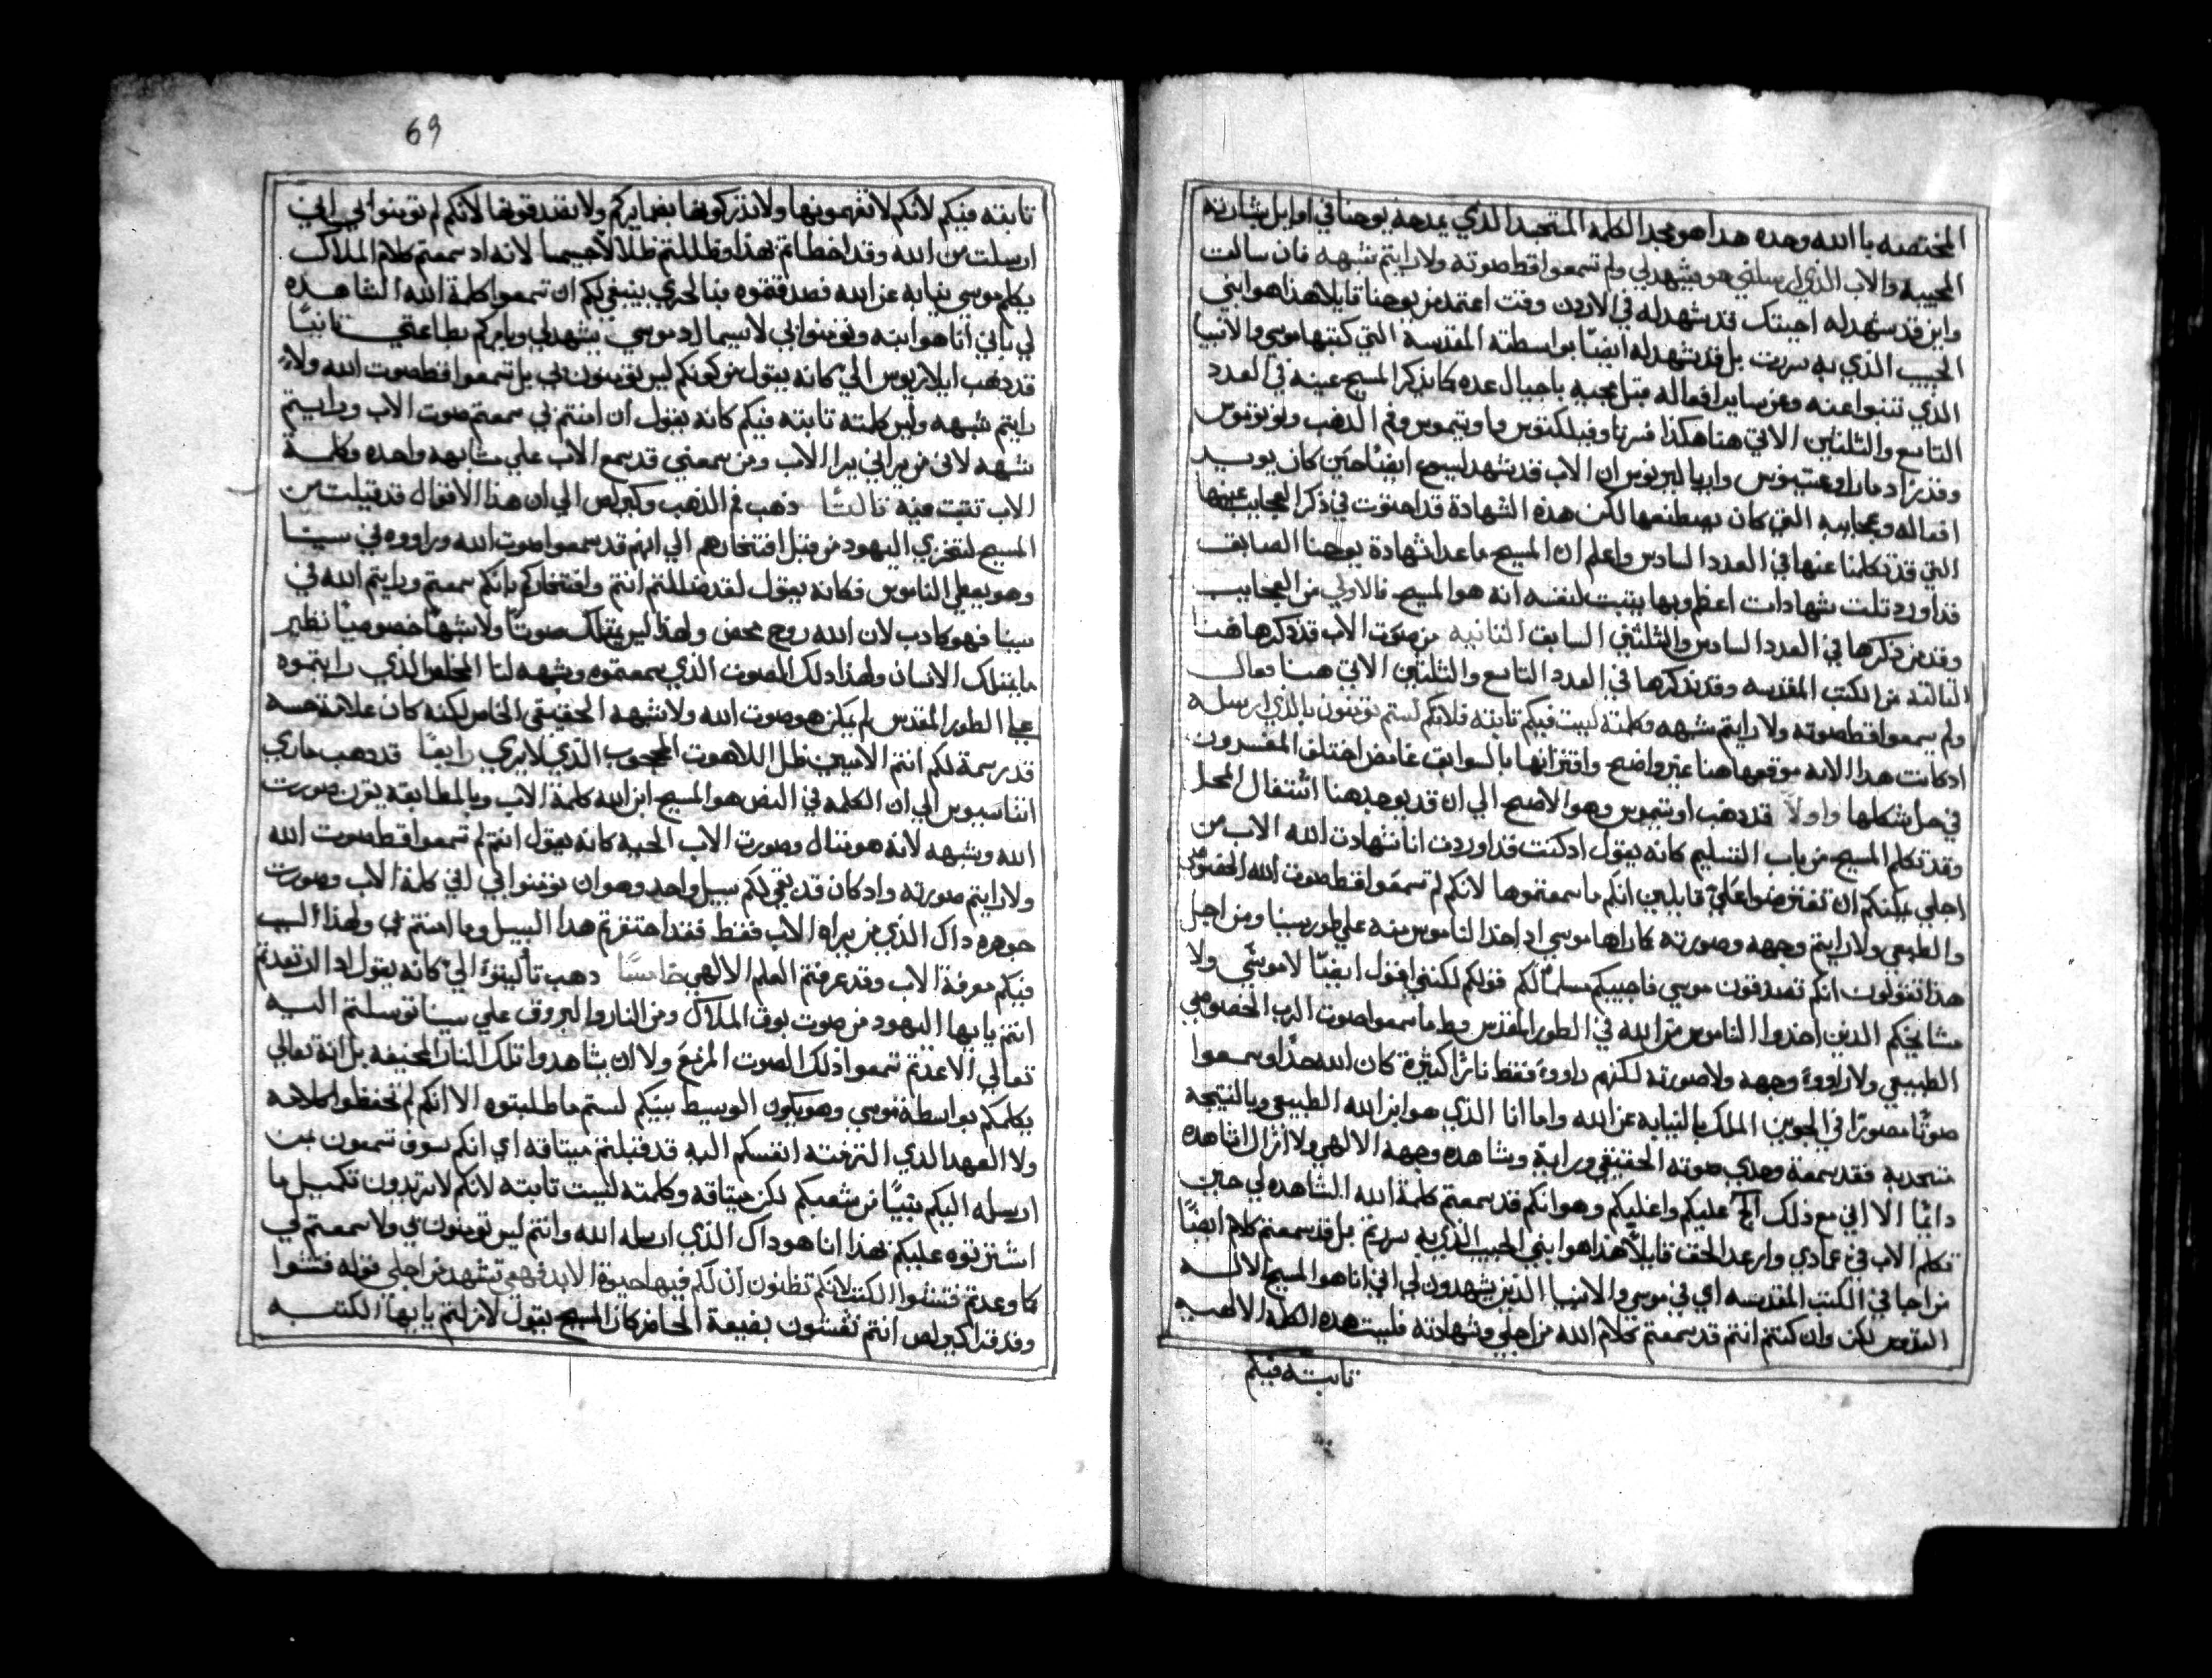 المختصه باالله وحده هدا هو مجد الكلمه المتجسد الذي يمدحه يوحنا في اوايل بشارته
المحييه والاب الذي ارسلني هو يشهد لي ولم تسمعوا قط صوته ولا رايتم شبهه فان سالت
واين قد شهد له اجيبك قد شهد له في الاردن وقت اعتمد من يوحنا قايلا هذا هو ابني
الحبيب الذي به سررت بل قد شهد له ايضًا بواسطته المقدسة التي كتبها موسي والانبيا
الذي تنبوا عنه وعن ساير افعاله قبل مجيه باجيال عده كما يذكر المسيح عينه في العدد
التاسع والثلثين الاتي هنا هكذا فسرتاوفيلكتوس وماوتيموس وفم الذهب ولونتوس
وقد زاد مارا وغسطينوس وابريا ليريوس ان الاب قد شهد لمسيح ايضًا حين كان يويد
افعاله وعجايبه التي كان يصطنعها لكن هذه الشهادة قد احتوت في ذكر العجايب عينها
التي قد تكلمنا عنها في العدد السادس واعلم ان المسيح ما عدا شهادة يوحنا الصابغ
قد اورد تلت شهادات اعظم وبها يتبت لنفسه انه هو المسيح فالاولي من العجايب
وقد مر ذكرها في العدد السادس والثلثين السابق الثانيه من صوت الاب قد ذكرها هنا
التالته من الكتب المقدسه وقد يذكرها في العدد التاسع والتلتين الاتي هنا فقال
ولم يسمعوا قط صوته ولا رايتم شبهه وكلمته ليست فيكم تابته فلانكم لستم تومنون بالذي ارسله
ادكانت هدا الايه موقعها هنا غير واضح واقترانها بالسوابق غامض اختلف المفسرون
في حل شكلها واولاً قد دهب اوتيموس وهو الاصح الي ان قد يوجد هنا انتقال المحل
وقد تكلم المسيح من باب التسليم كانه يقول ادكنت قد اوردت انا شهادت الله الاب من
اجلي يمكنكم ان تعترضوا علي قايلين انكم ما سمعتموها لانكم لم تسمعوا قط صوت الله الخصوصي
والطبيعي ولا رايتم وجهه وصورته كما راها موسي اد اخذ الناموس منه علي طور سينا ومن اجل
هذا تقولون انكم تصدقون موسي فاجيبكم مسلمًا لكم قولكم لكنني اقول ايضًا لا موسي ولا
مشايخكم الدين اخدوا الناموس من الله في الطور المقدس قط ما سمعوا صوت الرب الخصوصي
الطبيعي ولا راووا وجهه ولا صورته لكنهم راووا فقط نارًا كثيرة كان الله يحدا وسمعوا
صوتًا مصورًا في الجو من الملك بالنيابه عن الله واما انا الذي هو ابن الله الطبيعي وبالنتيجه
متحد به فقد سمعة وحدي صوته الحقيقي ورايه وشاهده وجهه الالهي ولا ازال اشاهده
دايمًا الا اني مع ذلك الح عليكم واغليكم وهو انكم قد سمعتم كلمة الله الشاهده لي حين
تكلم الاب في عمادي وارعد الحق قايلاً هذا هو ابني الحبيب الذي به سررت بل قد سمعتم كلام ايضًا
من اجل في الكتب المقدسه اي في موسي والانبيا الذين يشهدون لي اني انا هو المسيح الاله
القدوس لكن وان كنتم انتم قد سمعتم كلام الله من اجلي وشهادته فليست هده الكلمه الالهيه
تابته فيكم
69
تابته فيكم لانكم لا تفهمونها ولا تذركونها بضمايركم ولا تصدقونها لانكم لم تومنوا بي اني
ارسلت من الله وقد اخطاتم بهذا وظللتم ظلالا جسيما لانه اد سمعتم كلام الملاك
يكلم موسي نيابه عن الله فصدقتموه فبالحري ينبغي لكم ان تسمعوا كلمة الله الشاهده
لي باني انا هو ابنه وتومنوا بي لا سيما اد موسي يشهد لي ويامركم بطاعتي تانيًا
قد دهب ايلاريوس الي كانه يقول من كونكم ليس تومنون بي بل تسمعوا قط صوت الله ولا
رايتم شبهه وليس كلمته تابته فيكم كانه يقول ان امنتم بي سمعتم صوت الاب ورايتم
شبهه لاني من يراني يرا الاب ومن سمعني قد سمع الاب علي مشابهه واحده وكلمة
الاب تتبت فيه تالتًا دهب فم الذهب وكيرلص الي ان هذا الاقوال قد قيلت من
المسيح لتخزي اليهود من قبل افتخارهم الي انهم قد سمعوا صوت الله وراووه في سينا
وهو يعطي الناموس فكانه يقول لقد ضللتم انتم وافتخاركم بانكم سمعتم ورايتم الله في
سينا فهو كادب لان الله روح محض ولهذا ليس يمتلك صوتًا ولا شبهًا خصوصيًا نظير
ما يمتلك الانسان ولهذا دلك الصوت الذي سمعتموه وشبهه لنا المخلص الذي رايتموه
علي الطور المقدس لم يكن هو صوت الله ولا شبهه الحقيقي الخاص لكنه كان علامة حسه
قد رسمة لكم انتم الاميين ظل اللاهوت المحجوب الذي لا يري رابعًا قد دهب ماري
اتناسيوس الي ان الكلمه في النص هو المسيح ابن الله كلمة الاب وبالمطابقه يقرن صورت
الله وشبهه لانه هو متال وصورت الاب الحيه كانه يقول انتم لم تسمعوا قط صوت الله
ولا رايتم صورته واد كان قد بقي لكم سبيل واحد وهو ان تومنوا بي اني كلمة الاب وصورت
جوهره داك الذي من يراه يرا الاب فقط فقد احتقرتم هدا السبيل وما امنتم بي ولهذا ليس
فيكم معرفة الاب وقد عرفتم العلم الالهي خامسًا دهب تاليفوا الي كانه يقول اد ارتعدتم
انتم يايها اليهود من صوت بوق الملاك ومن النار والبروق علي سينا توسلتم اليه
تعالي الا عدتم تسمعوا ذلك الصوت المرعب ولا ان يشاهدوا تلك النار المخيفه بل انه تعالي
يكلمكم بواسطة موسي وهو يكون الوسيط بينكم لستم ما طلبتوه الا انكم لم تحفظوا كلامه
ولا العهد الذي التزمته انفسكم اليه قد قبلتم ميتاقه اي انكم سوف تسمعون من
ارسله اليكم نبيًا من شعبكم لكن ميتاقه وكلمته ليست تابته لانكم لا تريدون تكميل ما
اشترتوه عليكم بهذا انا هو داك الذي ارسله الله وانتم ليس تومنون بي ولا سمعتم لي
كما وعدتم فتشوا الكتب لانكم تظنون ان لكم فيها حيوة الابد فهي تشهد من اجلي قوله فتشوا
وقد قرا كيرلص انتم تفتشون بصيغة الحاضر كان المسيح يقول لازلتم يايها الكتبه